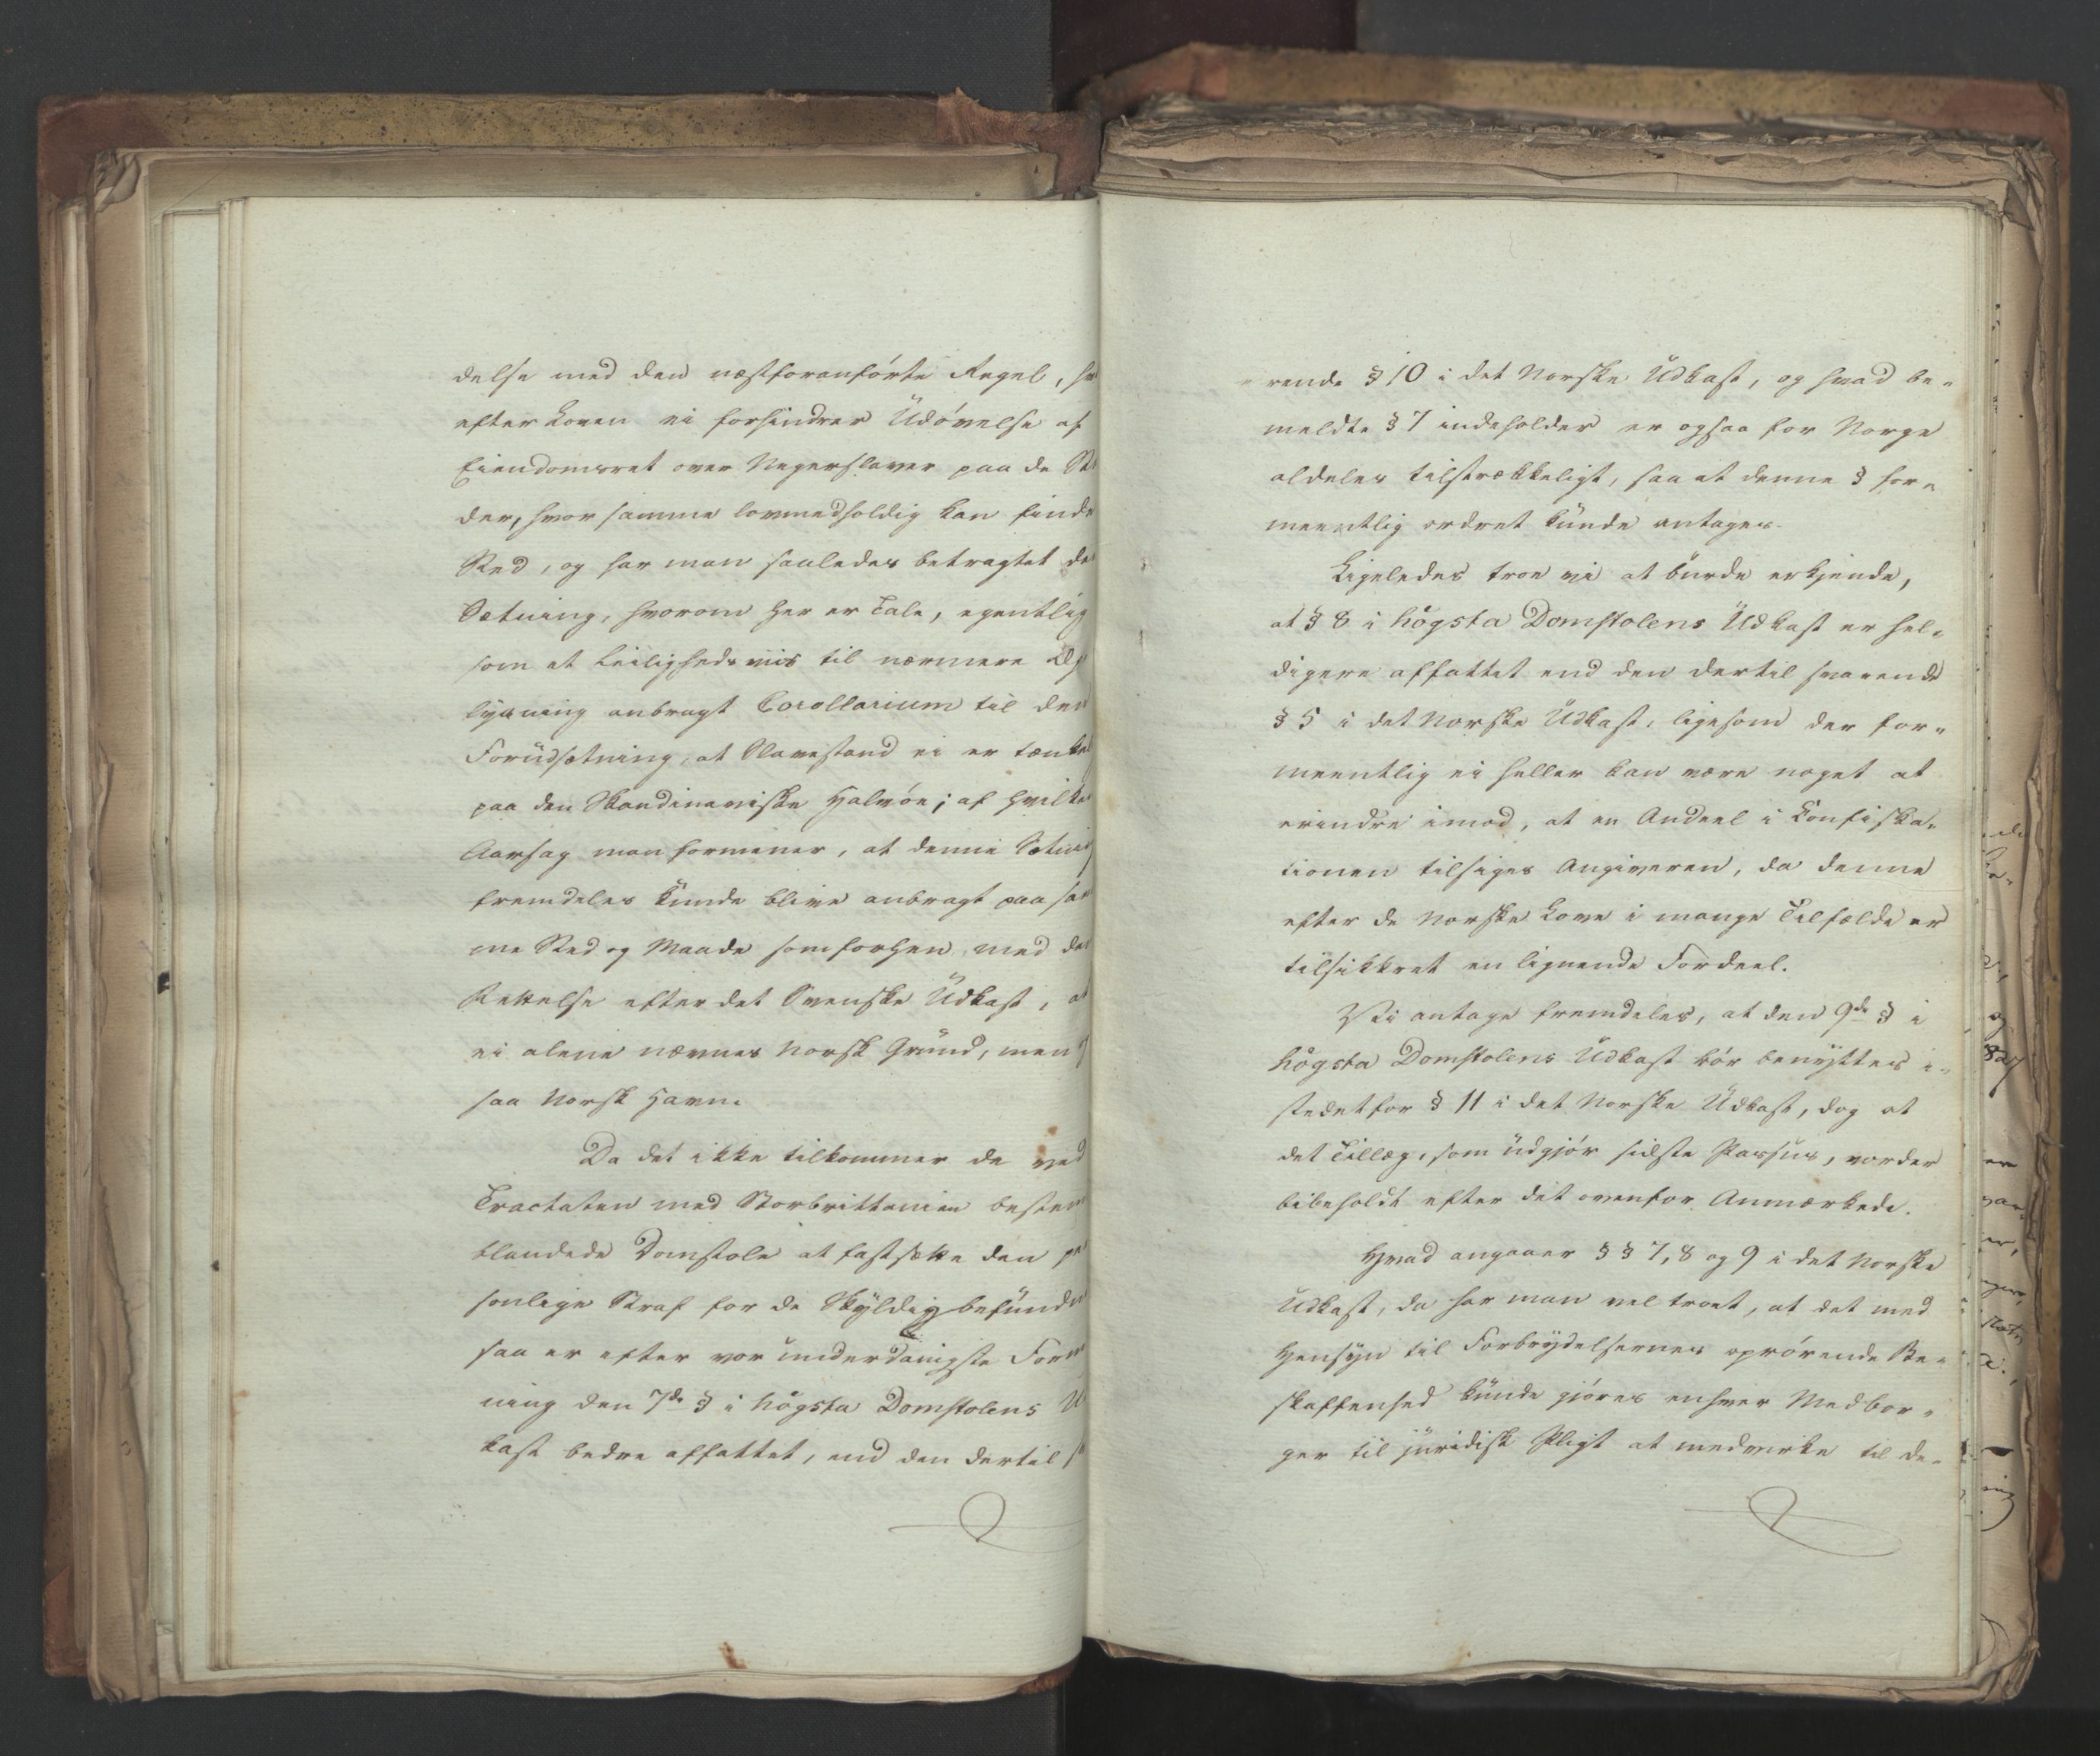 delse med den næstforanførte Regel, hv
efter Loven ei forhindrer Udøvelse af
Eiendomsret over Negerslaver paa de St
der, hvor samme lovmedholdig kan finde
Sted, og har man saaledes betragtet de
Sætning, hvorom her er Tale, egentlig
som et Leilighedsviis til nærmere Op
lysning anbragt Corollarium til den
Forudsætning, at Slavestand ei er tænke
paa den Skandinaviske Halvøe; af hvilke
Aarsag man formener, at denne Sætning
fremdeles kunde blive anbragt paa sam
me Sted og Maade som forhen, med de
Rettelse efter det Svenske Udkast, at
ei alene nævnes Norsk Grund, men og
saa Norsk Havn.
Da det ikke tilkommer de ved
Tractaten med Storbrittanien bestem
blandede Domstole at fastsætte den pe
sonlige Straf for de Skyldig befundn
saa er efter vor underdanigste Form
ning den 7de § i Högsta Domstolens U
kast bedre affattet, end den dertil s
rende § 10 i det Norske Udkast, og hvad be-
meldte § 7 indeholder er ogsaa for Norge
aldeles tilstrækkeligt, saa at denne § for-
meentlig ordret kunde antages.
Ligeledes troe vi at burde erkjende,
at § 8 i Högsta Domstolens Udkast er hel-
digere affattet end den dertil svarende
§ 5 i det Norske Udkast, ligesom der for-
meentlig ei heller kan være noget at
erindre imod, at en Andeel i Confiska-
tionen tilsiges Angiveren, da denne
efter de Norske Love i mange Tilfælde er
tilsikkret en lignende Fordeel.
Vi antage fremdeles, at den 9de § i
Högsta Domstolens Udkast bør benyttes i-
stedetfor § 11 i det Norske Udkast, dog at
det Tillæg, som udgjør sidste Passus, vorder
bibeholdt efter det ovenfor Anmærkede.
Hvad angaaer §§ 7, 8 og 9 i det Norske
Udkast, da har man vel troet, at det med
Hensyn til Forbrydelsernes oprørende Be-
skaffenhed kunde gjøres enhver Medbor-
ger til juridisk Pligt at medvirke til de-